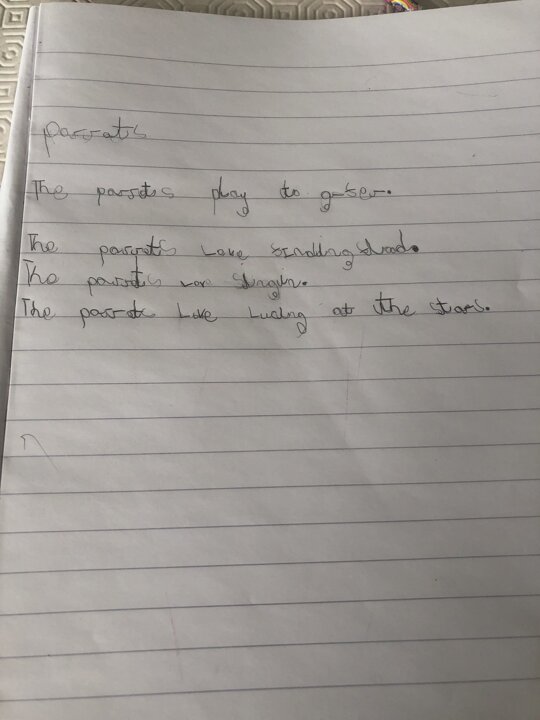 parrats
The parrots play to g-ser.
The parrots Love
The parrots singin.
The parrots Love Lucing at the stars.